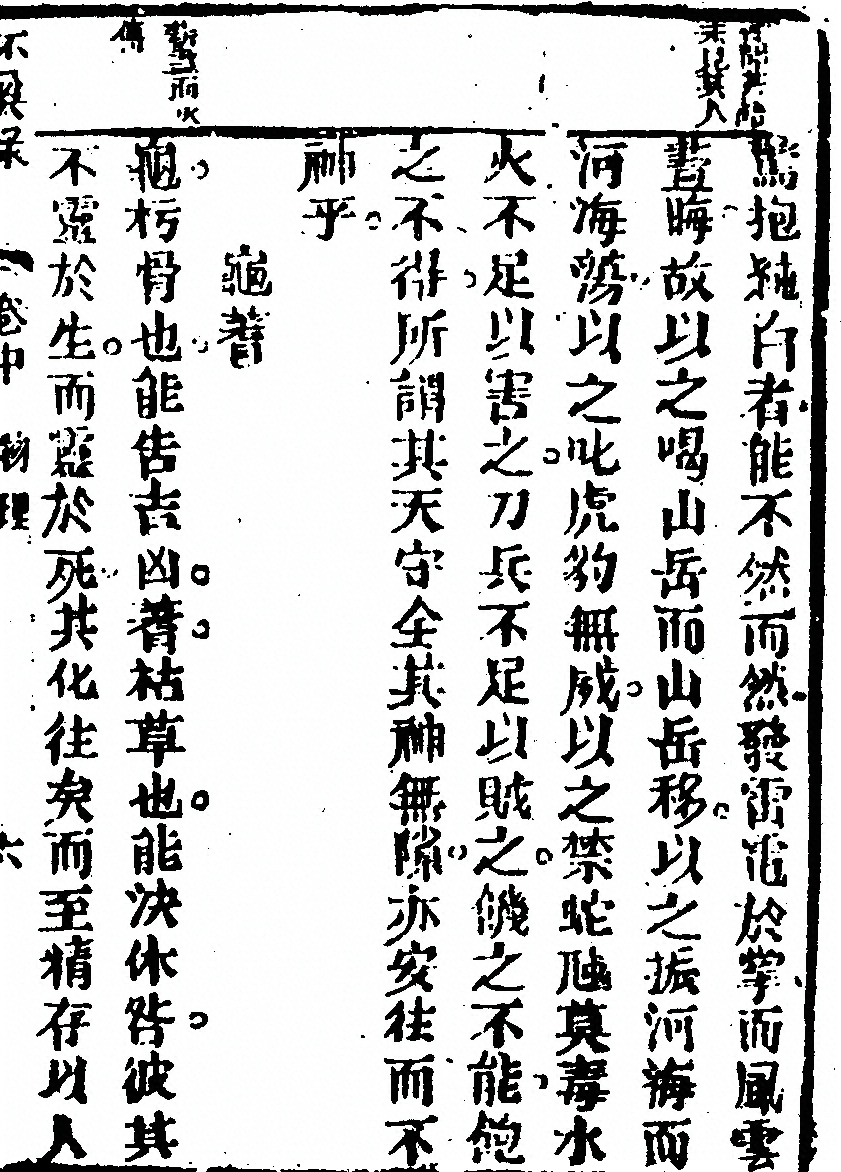 抱純白者能不然而然發雷電於掌而風雲
晦故以之喝山岳而山岳移以之振河海而
河海蕩以之叱虎豹無威以之禁蛇虺莫毒水
火不足以害之刀兵不足以賊之饑之不能飽
之不得所謂其天守全其神無隙亦安往而不
神乎
龜蓍
龜朽骨也能告吉凶蓍枯草也能決休咎彼其
不靈於生而靈於死其化往矣而至精存以人
卷中 物理 六